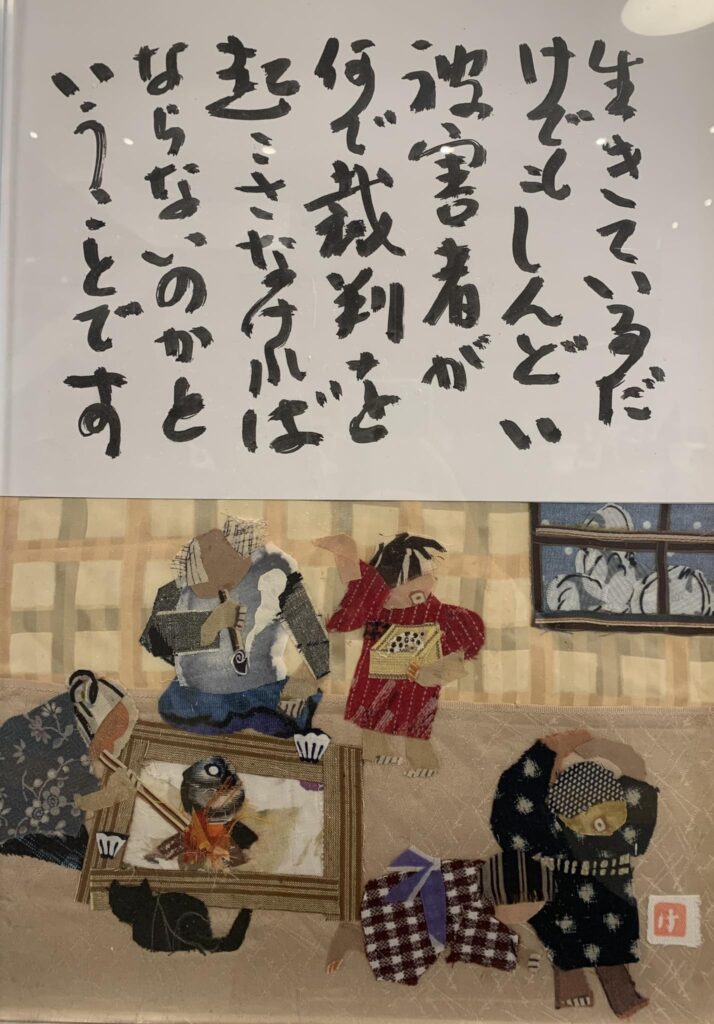 生きているだ
けでもしんどい
被害者が
何で裁判を
起こさなければ
ならないのかと
いうことです
け